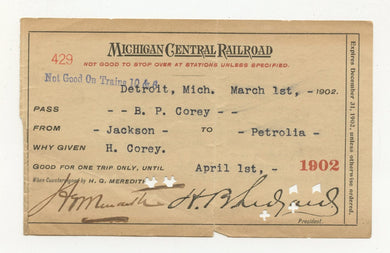 MICHIGAN CENTRAL RAILROAD
NOT GOOD TO STOP OVER AT STATIONS UNLESS SPECIFIED.
429
Not Good On Trains 10 &
Detroit, Mich. March 1st, -1902.
PASS - - B. P. Corey - -
FROM - Jackson - TO - Petrolia -
WHY GIVEN H. Corey.
GOOD FOR ONE TRIP ONLY, UNTIL April 1st, - 1902
When Countersigned by H. G. MEREDITH
President.
Expires December 31, 1902, unless otherwise ordered.